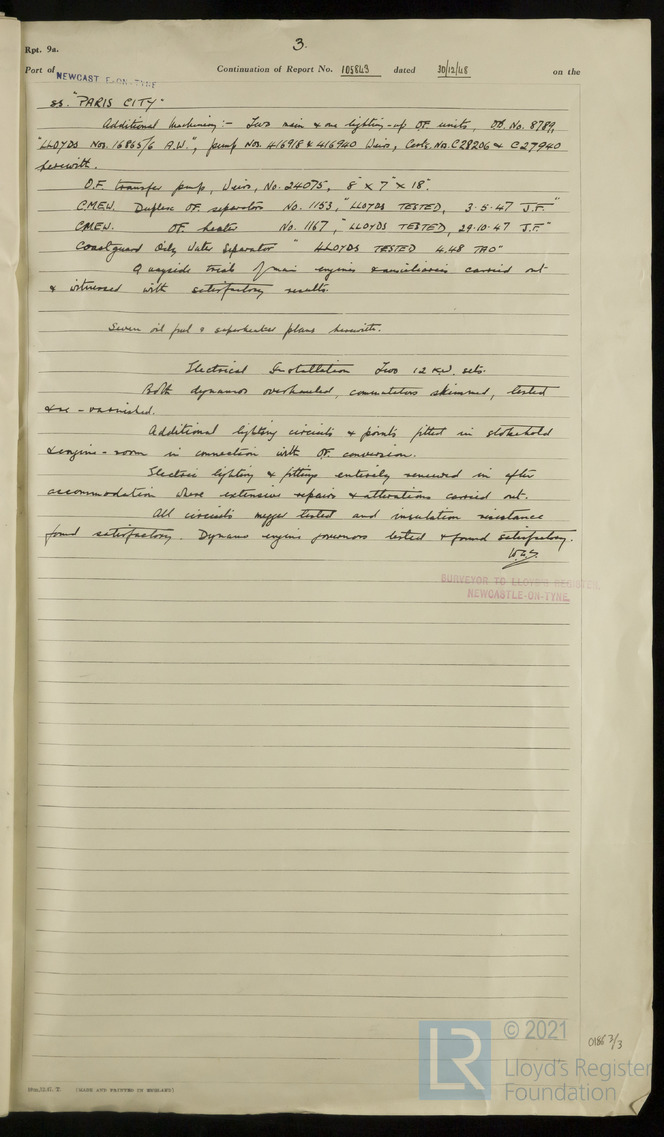 3.
Rpt. 9a.
Port of NEWCASTLE-ON-TYNE Continuation of Report No. 105843 dated 30/12/48 on the
ss. "PARIS CITY"
Additional Machinery:- Two main & one lighting-up OF. units, Ob. No. 8789,
"LLOYDS Nos. 16865/6 A.W.", pump Nos. 416918 & 416940 Weirs, Certs. No. C28206 & C27940
herewith.
O.F. transfer pump, Weirs, No. 24075, 8" x 7" x 18".
CMEW. Duplex OF. separators No. 1153, "LLOYDS TESTED, 3.5.47 J.F."
CMEW. OF. heater No. 1167, "LLOYDS TESTED, 29.10.47 J.F."
Coastguard Oily Water Separator "LLOYDS TESTED 4.48 TAO"
Quayside trials of main engines & auxiliaries carried out
& witnessed with satisfactory results.
Seven oil fuel & superheater plans herewith.
Electrical Installation Two 12 KW. sets.
Both dynamos overhauled, commutators skimmed, tested
& re-varnished.
Additional lighting circuits & points fitted in stokehold
& engine-room in connection with OF. conversion.
Electric lighting & fittings entirely renewed in after
accommodation where extensive repairs & alterations carried out.
All circuits megger tested and insulation resistance
found satisfactory. Dynamo engine governors tested & found satisfactory.
SURVEYOR TO LLOYD'S REGISTER,
NEWCASTLE-ON-TYNE.
(MADE AND PRINTED IN ENGLAND)
LR © 2021
Lloyd's Register
Foundation
0186 2/3